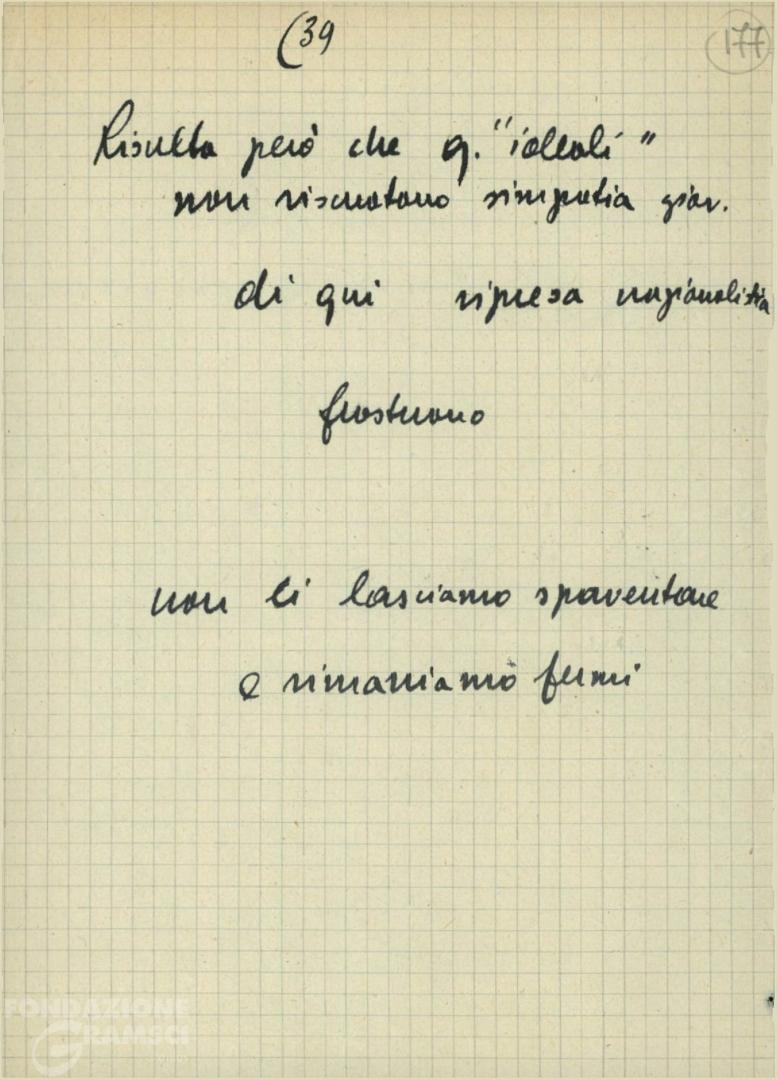 (39
177
Risulta però che q. "ideali"
non riscuotono simpatia giov.
di qui ripresa nazionalistica
frastuono
non ci lasciamo spaventare
e rimaniamo fermi
FONDAZIONE
GRAMSCI